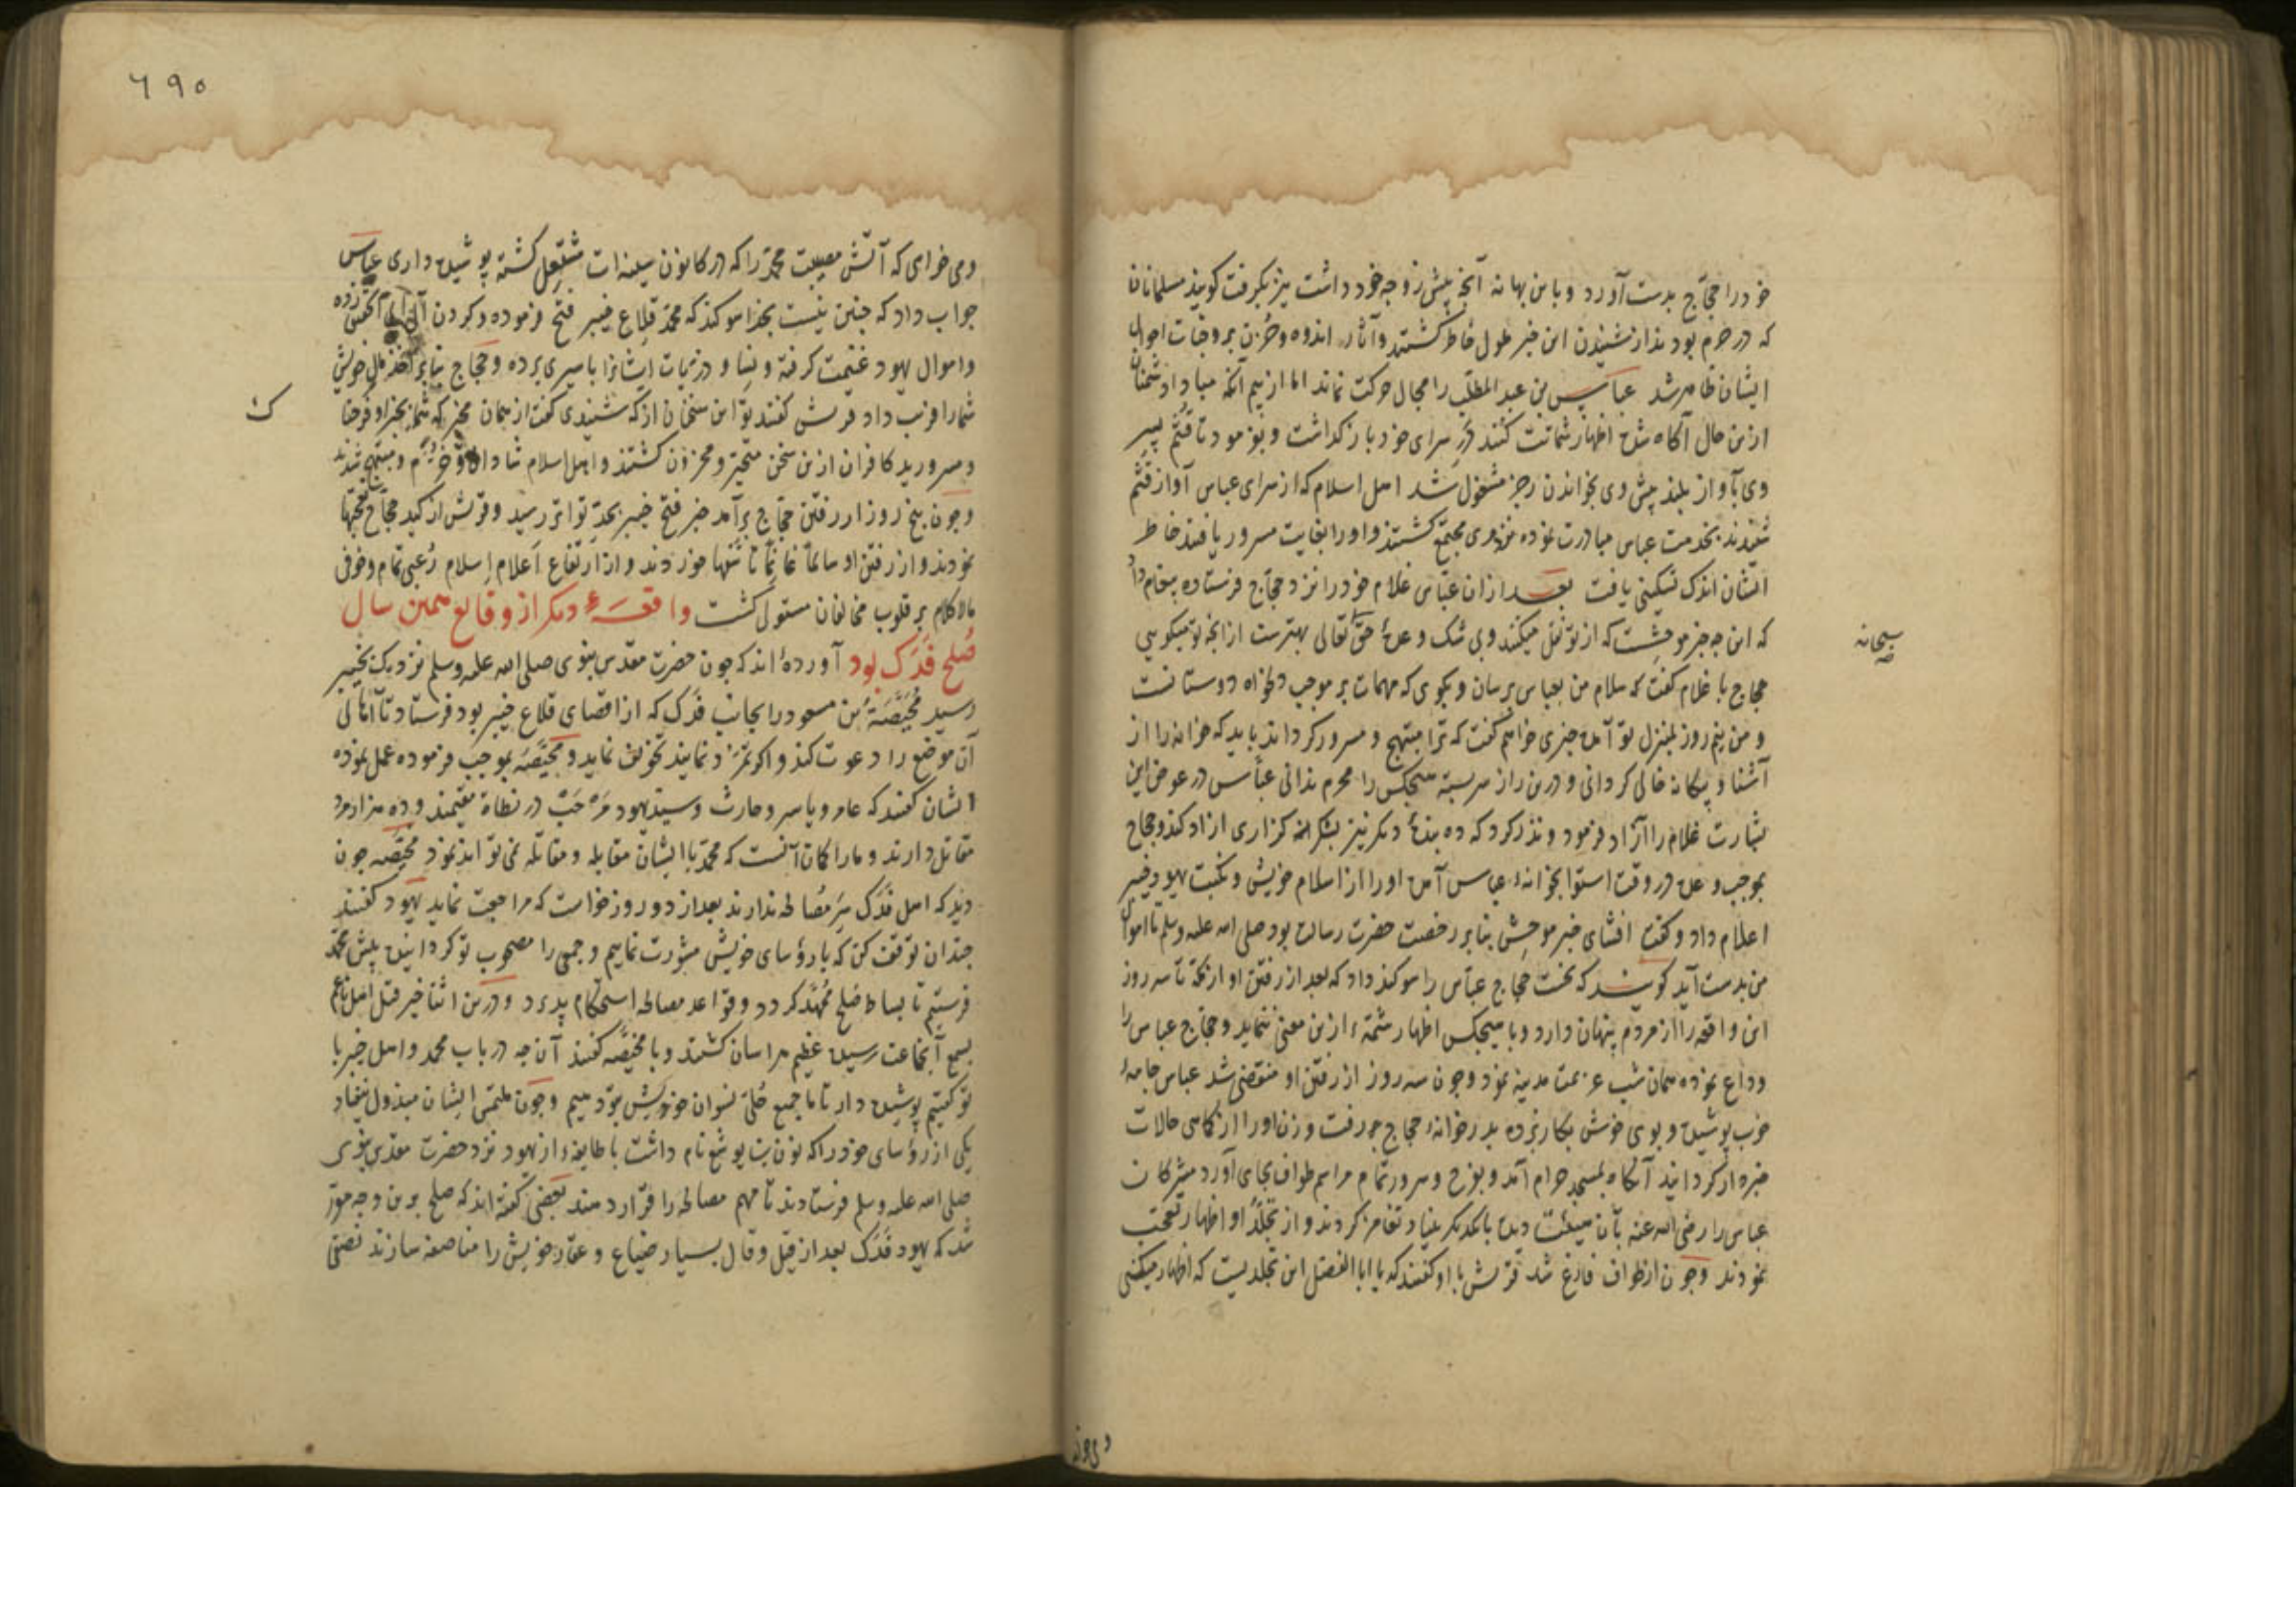 خود را حجّاج بدست آورد و باین بهانه آنچه پیش زوجه خود داشت نیز بکرفت کویند مسلمانان
که در حرم بودند از شنیدن این خبر ملول خاطر کشتند و آثار اندوه و حُزن بر وجنات احوال
ایشان ظاهر شد عباس بن عبد المطلّب را مجال حرکت نماند اما از بیم آنکه مبادا دشمنان
ازین حال آکاه شده اظهار شماتت کنند دَرِ سرای خود باز کذاشت و بفرمود تا قُثَم پسرِ
وی بآواز بلند پیش وی بخواندن رجز مشغول شد اهل اسلام که از سرای عباس آواز قُثَم
شنودند بخدمت عباس مبادرت نموده نزد وی مجتمع کشتند و او را بغایت مسرور یافتند خاطر
ایشان اندک تسکینی یافت بعد ازان عبّاس غلام خود را نزد حجّاج فرستاده پیغام داد
که این چه خبر موحِش است که از تو نقل میکنند و بی شک وعدهٔ حقّ تعالی بهترست از آنچه تو میکویی
سبحانه
حجاج با غلام کفت که سلام من بعباس برسان و بکوی که مهمات بر موجب دلخواه دوستانست
و من نیم روز بمنزل تو آمده خبری خواهم کفت که ترا مبتهج و مسرور کرداند باید که خانه را از
آشنا و بیکانه خالی کردانی و درین راز سربسته هیچکس را محرم ندانی عبّاس در عوض این
بشارت غلام را آزاد فرمود و نذر کرد که ده بندهٔ دیکر نیز بشکرانه کزاری ازاد کند و حجاج
بموجب وعده در وقت استوا بخانهٔ عباس آمده او را از اسلام خویش و نکبت یهود خیبر
اعلام داد و کفت افشای خبر موحِش بنابر رخصت حضرت رسالت بود صلی الله علیه وسلم تا اموال
من بدست آید کویند که نخست حجاج عبّاس را سوکند داد که بعد از رفتن او از مکّه تا سه روز
این واقعه را از مردم پنهان دارد و با هیچکس اظهار شمّهٔ ازین معنی ننماید و حجّاج عباس را
وداع نموده همان شب عزیمت مدینه نمود و چون سه روز از رفتن او منقضی شد عباس جامهٔ
خوب پوشیده و بوی خوش بکار برده بدر خانهٔ حجاج رفت و زن او را از کماهی حالات
خبردار کردانید آنکاه بمسجد حرام آمد و بفرح و سرور تمام مراسم طواف بجای آورد مشرکان
عباس را رضی الله عنه بآن هیئت دیده با یکدیکر بنیاد تغامز کردند و از تجلّد او اظهار تعجّب
نمودند و چون از طواف فارغ شد قریش با او کفتند که یا ابا الفضل این تجلّدیست که اظهار میکنی
۶۹۰
و می خواهی که آتش مصیبت محمّد را که در کانون سینه ات مشتعل کشته پوشیده داری عباس
جواب داد که چنین نیست بخدا سوکند که محمّد قِلاع خیبر فتح فرموده و کردن زده
و اموال یهود غنیمت کرفته و نِسا و ذرّیات ایشانرا باسیری برده و حجّاج بنابر اخذ مال خویش
شما را فریب داد قریش کفتند تو این سخنان از که شنیدی کفت از همان مخبر که شما بخبر او فرحناک
و مسرورید کافران ازین سخن متحیّر و محزون کشتند و اهل اسلام شادان و خرّم و مبتهج شدند
و چون پنج روز از رفتن حجّاج برآمد خبر فتح خیبر بحدّ تواتر رسید و قریش از کید حجّاج تعجّبها
نمودند و از رفتن او سالمًا غانمًا تأسّفها خوردند و از ارتفاع اَعلام اسلام رُعبی تمام و خوفی
مالاکلام بر قلوب مخالفان مستولی کشت واقعهٔ دیکر از وقایع همین سال
صُلح فَدَک بود آورده‌اند که چون حضرت مقدّس نبوی صلی الله علیه وسلم نزدیک بخیبر
رسید مُحَیّصَةُ بن مسعود را بجانب فَدَک که از اقصای قلاع خیبر بود فرستاد تا اهالی
آن موضع را دعوت کند و اکر تمرّد نمایند تخویف نماید و مُحَیّصَه بموجب فرموده عمل نموده
ایشان کفتند که عامر و یاسر و حارث و سیّد یهود مَرحَب در نطاة مقیمند و ده هزار مرد
مقاتل دارند و ما را کمان آنست که محمّد با ایشان مقابله و مقاتله نمی تواند نمود مُحَیّصه چون
دید که اهل فَدَک سرِ مُصالحه ندارند بعد از دو روز خواست که مراجعت نماید یهود کفتند
چندان توقف کن که با رؤسای خویش مشورت نماییم و جمعی را مصحوب تو کردانیده پیش محمّد
فرستیم تا بساط صُلح مُمَهّد کردد و قواعد مصالحه استحکام پذیرد و درین اثنا خبر قتل اهل ناعم
بسمع آنجماعت رسیده عظیم هراسان کشتند و با مُحَیّصه کفتند آنچه در باب محمد و اهل خیبر با
تو کفتیم پوشیده دار تا ما جمیع حُلیّ نسوان خویش بتو دهیم و چون ملتمس ایشان مبذول نیفتاد
یکی از رؤسای خود را که نون بن یوشع نام داشت با طایفهٔ از یهود نزد حضرت مقدّس نبوی
صلی الله علیه وسلم فرستادند تا مهم مصالحه را قرار دهند بعضی کفته‌اند که صلح برین وجه مقرّر
شد که یهود فَدَک بعد از قیل و قال بسیار ضیاع و عقار خویش را مناصفه سازند نصفی